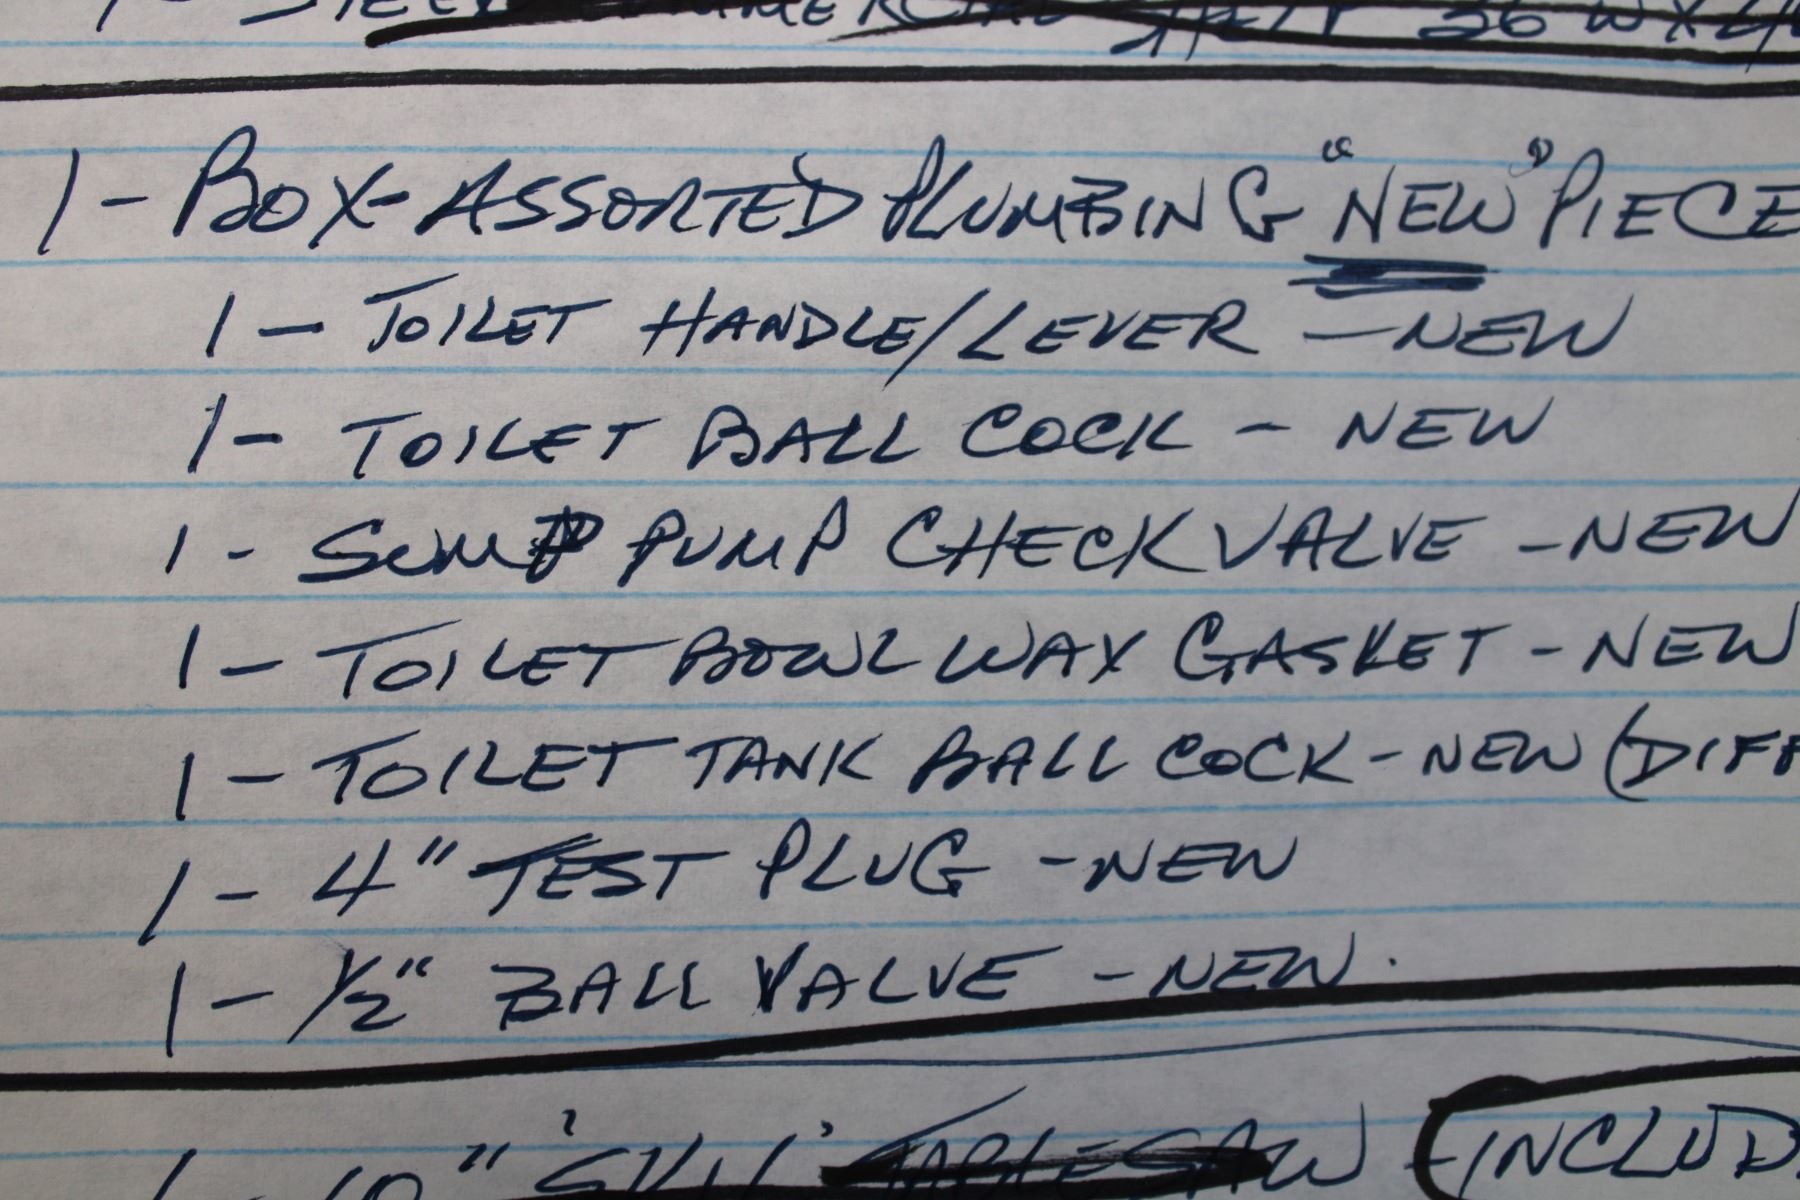 1 - BOX - ASSORTED PLUMBING "NEW" PIECE
1 - TOILET HANDLE/LEVER - NEW
1 - TOILET BALL COCK - NEW
1 - SUMP PUMP CHECK VALVE - NEW
1 - TOILET BOWL WAX GASKET - NEW
1 - TOILET TANK BALL COCK - NEW (DIFF
1 - 4" TEST PLUG - NEW
1 - 1/2" BALL VALVE - NEW.
1 - 10" 'SKIL' TABLESAW (INCLUD